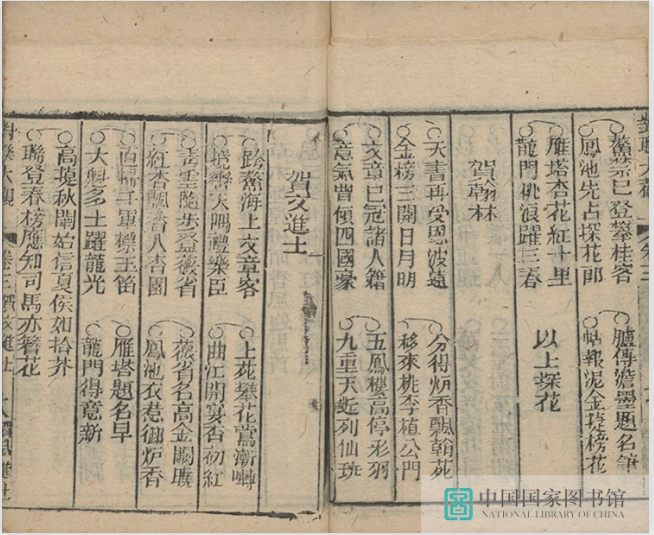 對聯大觀 卷三
鰲禁已登攀桂客 臚傳澹墨題名筆
鳳池先占探花郎 帖報泥金榜花
雁塔杏花紅十里
龍門桃浪躍三春 以上探花
賀翰林
天書再受恩波遠 分得炉香飄翰苑
金榜三開日月明 移來桃李植公門
文章已冠諸人籍 五鳳樓高停彩羽
意氣曾傾四國豪 九重天近列仙班
賀文進士
跨鰲海上文章客 上苑攀花鶯漸囀
大隅禮樂臣 曲江開宴杏初紅
青雲隨步登薇省 薇省名高金闕曙
紅杏飄香入杏園 鳳池衣惹御炉香
直掃千軍標玉笛 雁塔題名早
大興多士躍龍光 龍門得意新
高捷秋闈始信夏侯如拾芥
聯登春榜應知司馬亦簪花
對聯大觀 卷三 賀文進士 十八
中国国家图书馆
NATIONAL LIBRARY OF CHINA